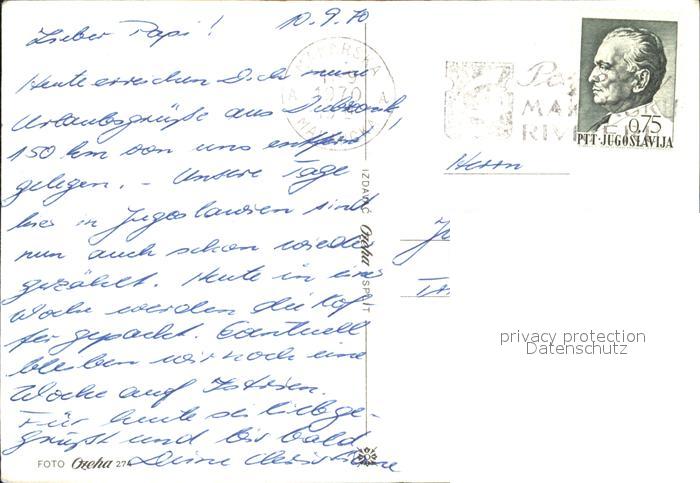 10.9.70
Lieber Papi!
Heute erreichen Dich meine
Urlaubsgrüße aus Dubrovnik,
150 km von uns entfernt
gelegen. - Unsere Tage
hier in Jugoslawien sind
nun auch schon wieder
gezählt. Heute in einer
Woche werden die Kof-
fer gepackt. Eventuell
bleiben wir noch eine
Woche auf Istrien.
Für heute sei liebge-
grüßt und bis bald
Deine Christiane
FOTO Oreha 274
IZDAVAČ Oreha SPLIT
MAKARSKA
1970
MAKARSKA
RIVIER
0.75
PTT·JUGOSLAVIJA
Herrn
privacy protection
Datenschutz